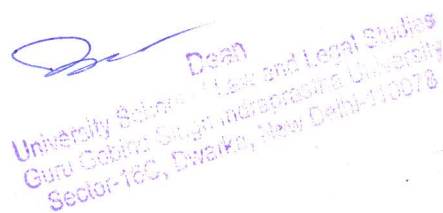 Dean
University School of Law and Legal Studies
Guru Gobind Singh Indraprastha University
Sector-16C, Dwarka, New Delhi-110078